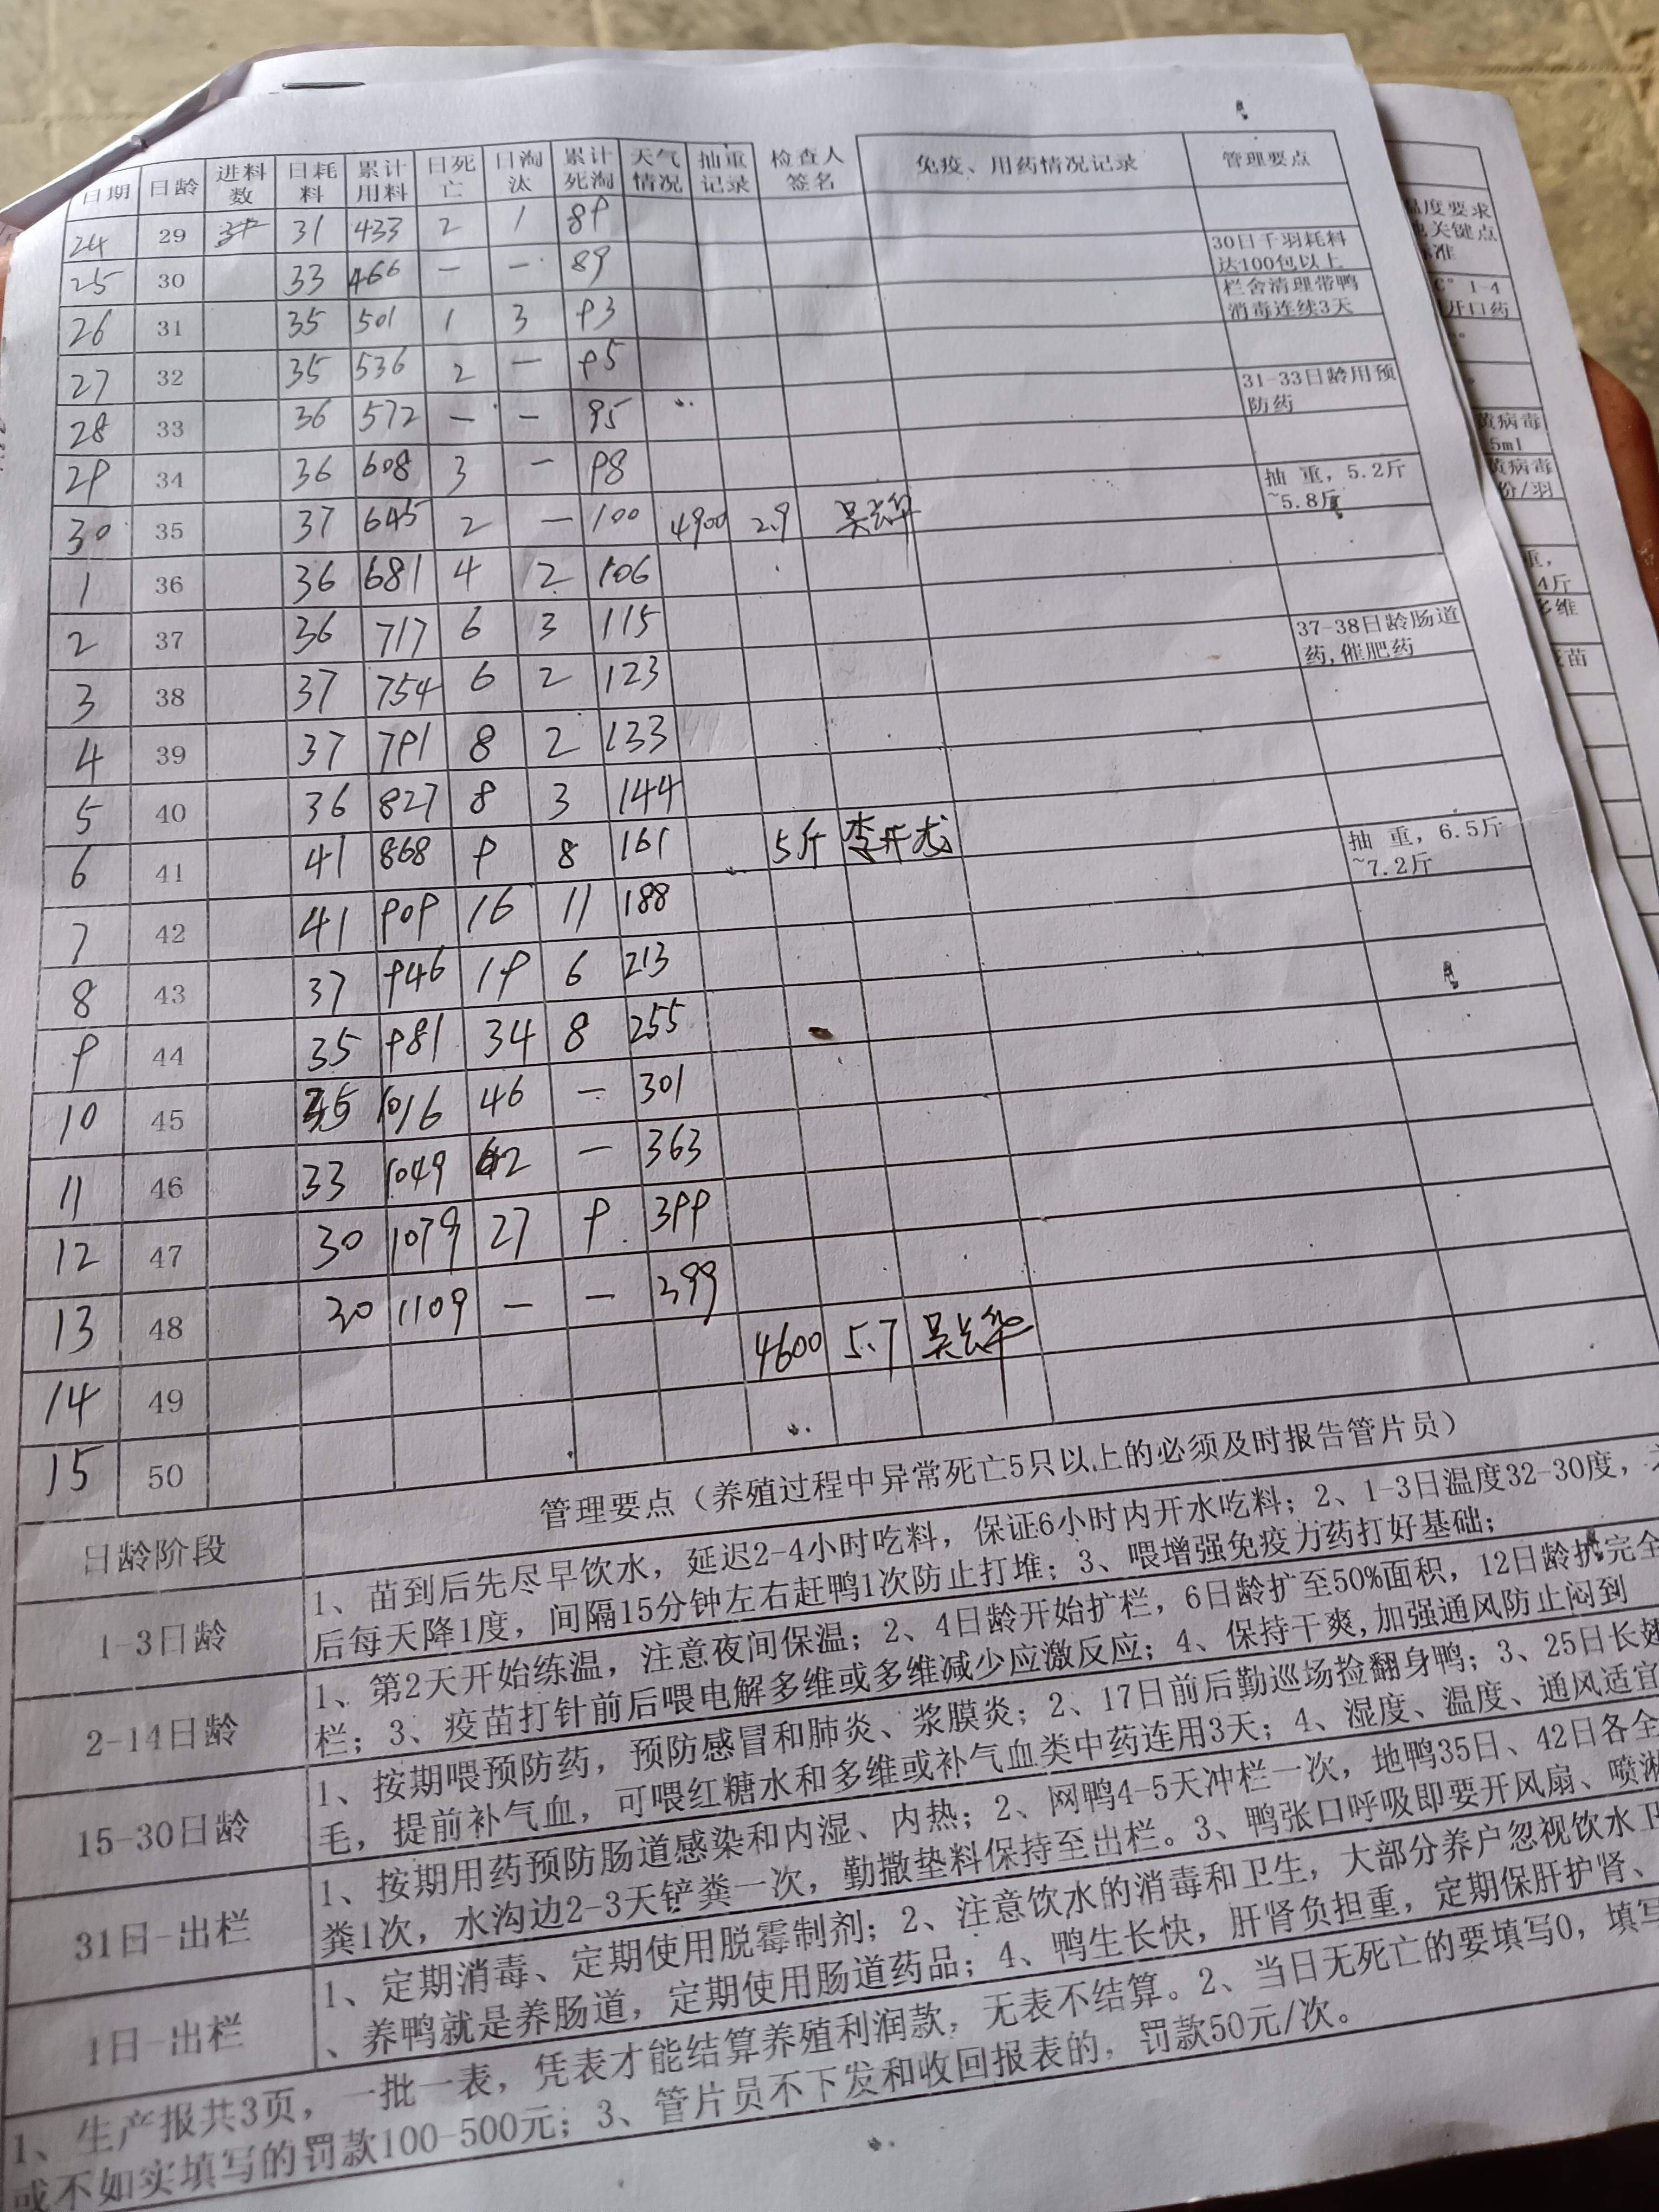 日期 日龄 进料数 日耗料 累计用料 日死亡 日淘汰 累计死淘 天气情况 抽重记录 检查人签名 免疫、用药情况记录 管理要点
24 29 31 433 2 1 89
25 30 33 466 — — 89 30日千羽耗料达100包以上
26 31 35 501 1 3 93 栏舍清理带鸭消毒连续3天
27 32 35 536 2 — 95
28 33 36 572 — — 95 31-33日龄用预防药
29 34 36 608 3 — 98
30 35 37 645 2 — 100 4900 2.9 吴长华 抽 重，5.2斤~5.8斤
1 36 36 681 4 2 106
2 37 36 717 6 3 115
3 38 37 754 6 2 123 37-38日龄肠道药,催肥药
4 39 37 791 8 2 133
5 40 36 827 8 3 144
6 41 41 868 9 8 161 5斤 李开龙 抽 重，6.5斤~7.2斤
7 42 41 909 16 11 188
8 43 37 946 19 6 213
9 44 35 981 34 8 255
10 45 35 1016 46 — 301
11 46 33 1049 62 — 363
12 47 30 1079 27 9 399
13 48 30 1109 — — 399
14 49 4600 5.7 吴长华
15 50
日龄阶段 管理要点（养殖过程中异常死亡5只以上的必须及时报告管片员）
1-3日龄 1、苗到后先尽早饮水，延迟2-4小时吃料，保证6小时内开水吃料；2、1-3日温度32-30度，
后每天降1度，间隔15分钟左右赶鸭1次防止打堆；3、喂增强免疫力药打好基础；
2-14日龄 1、第2天开始练温，注意夜间保温；2、4日龄开始扩栏，6日龄扩至50%面积，12日龄扩完全
栏；3、疫苗打针前后喂电解多维或多维减少应激反应；4、保持干爽,加强通风防止闷到
15-30日龄 1、按期喂预防药，预防感冒和肺炎、浆膜炎；2、17日前后勤巡场捡翻身鸭；3、25日长翅
毛，提前补气血，可喂红糖水和多维或补气血类中药连用3天；4、湿度、温度、通风适宜
31日-出栏 1、按期用药预防肠道感染和内湿、内热；2、网鸭4-5天冲栏一次，地鸭35日、42日各全
粪1次，水沟边2-3天铲粪一次，勤撒垫料保持至出栏。3、鸭张口呼吸即要开风扇、喷淋
1日-出栏 1、定期消毒、定期使用脱霉制剂；2、注意饮水的消毒和卫生，大部分养户忽视饮水卫
、养鸭就是养肠道，定期使用肠道药品；4、鸭生长快，肝肾负担重，定期保肝护肾、
1、生产报共3页，一批一表，凭表才能结算养殖利润款，无表不结算。2、当日无死亡的要填写0，填写
或不如实填写的罚款100-500元；3、管片员不下发和收回报表的，罚款50元/次。
温度要求
关键点
标准
C° 1-4
开口药
黄病毒
5ml
黄病毒
份/羽
重，
4斤
多维
疫苗